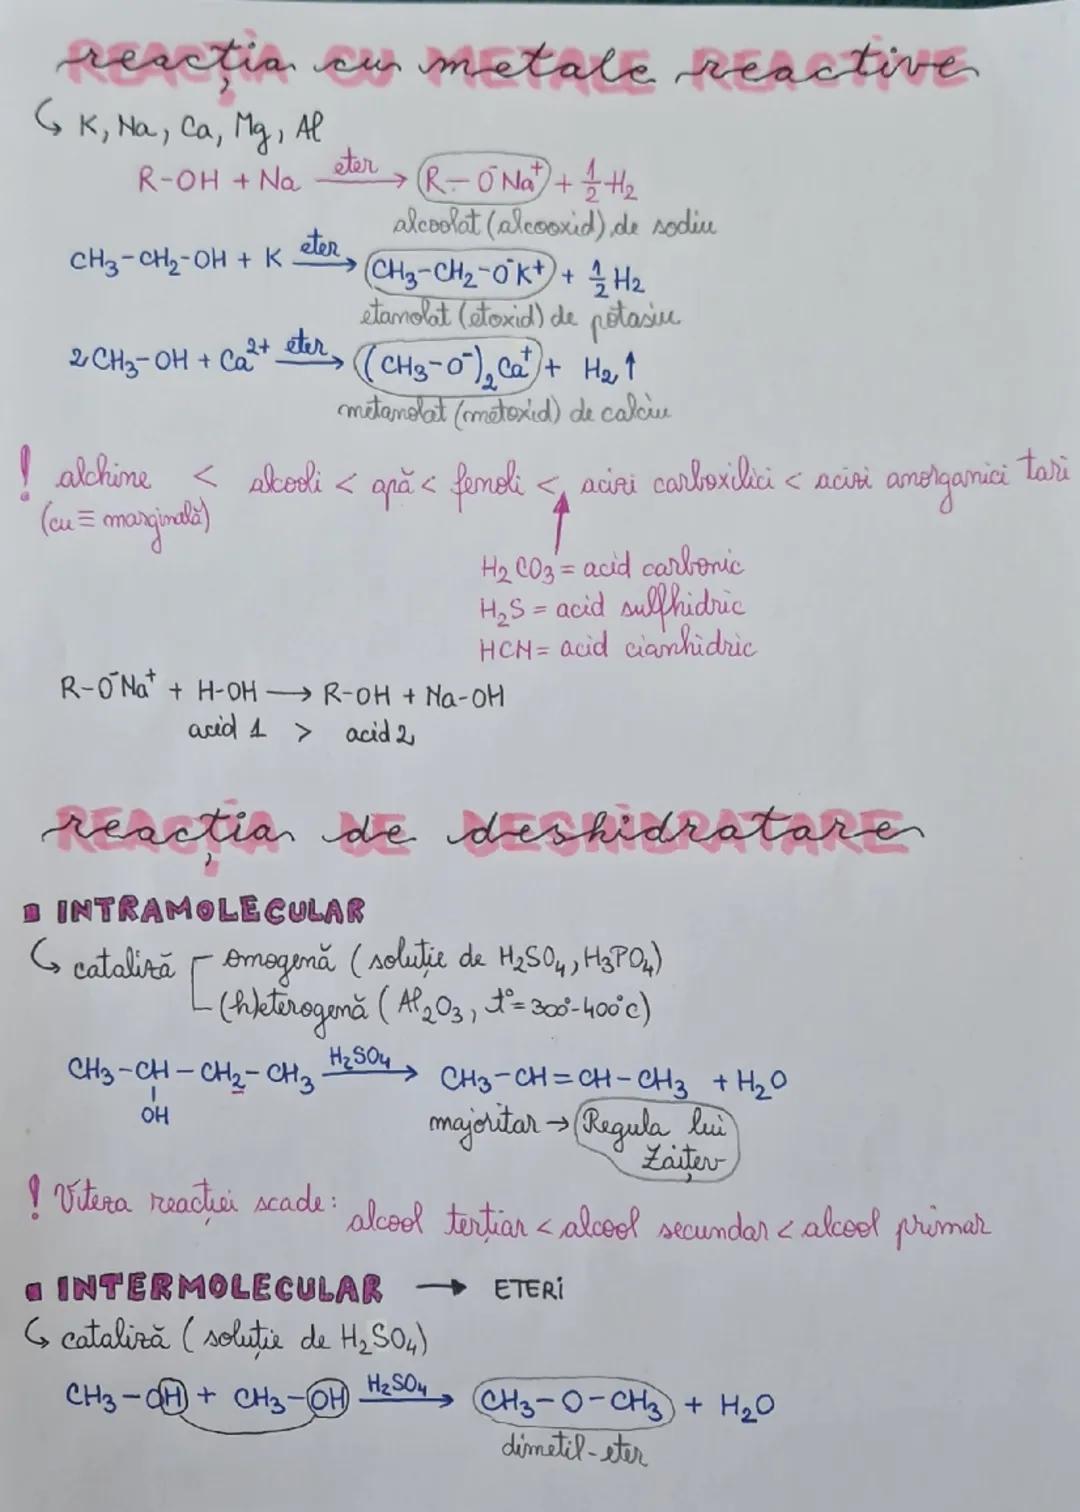 reacția cu metale reactive
↳ K, Na, Ca, Mg, Al
R-OH + Na —eter→ R-O⁻Na⁺ + ½ H₂
alcoolat (alcooxid) de sodiu
CH₃-CH₂-OH + K —eter→ CH₃-CH₂-O⁻K⁺ + ½ H₂
etanolat (etoxid) de potasiu
2 CH₃-OH + Ca²⁺ —eter→ (CH₃-O⁻)₂Ca⁺ + H₂↑
metanolat (metoxid) de calciu
! alchine < alcooli < apă < fenoli < acizi carboxilici < acizi anorganici tari
(cu ≡ marginală)
H₂CO₃ = acid carbonic
H₂S = acid sulfhidric
HCN = acid cianhidric
R-O⁻Na⁺ + H-OH → R-OH + Na-OH
acid 1 > acid 2
reacția de deshidratare
INTRAMOLECULAR
↳ cataliză omogenă (soluție de H₂SO₄, H₃PO₄)
(h)eterogenă (Al₂O₃, t°= 300°-400°C)
CH₃-CH-CH₂-CH₃ —H₂SO₄→ CH₃-CH=CH-CH₃ + H₂O
OH
majoritar → Regula lui
Zaițev
! Viteza reacției scade: alcool terțiar < alcool secundar < alcool primar
INTERMOLECULAR → ETERi
↳ cataliză (soluție de H₂SO₄)
CH₃-OH + CH₃-OH —H₂SO₄→ CH₃-O-CH₃ + H₂O
dimetil-eter